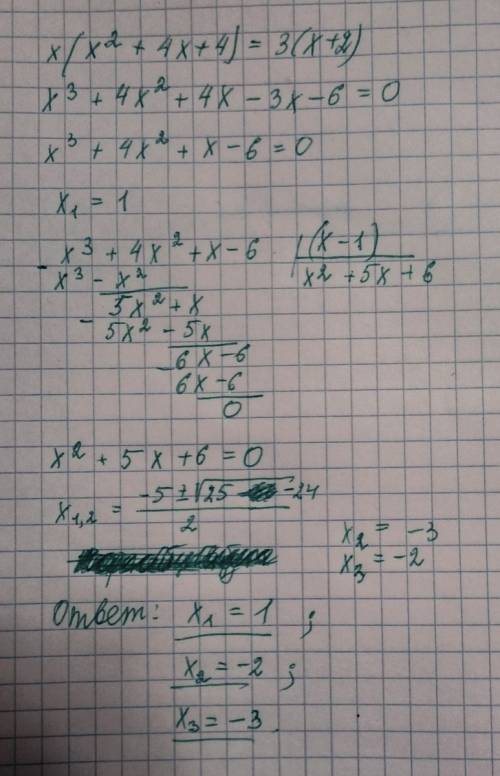 x(x² + 4x + 4) = 3(x+2)
x³ + 4x² + 4x - 3x - 6 = 0
x³ + 4x² + x - 6 = 0
x₁ = 1
- x³ + 4x² + x - 6 | (x - 1)
x³ - x² x² + 5x + 6
5x² + x
- 5x² - 5x
- 6x - 6
6x - 6
0
x² + 5x + 6 = 0
x₁,₂ = (-5 ± √(25 - 24)) / 2
x₂ = -3
x₃ = -2
Ответ: x₁ = 1 ;
x₂ = -2 ;
x₃ = -3